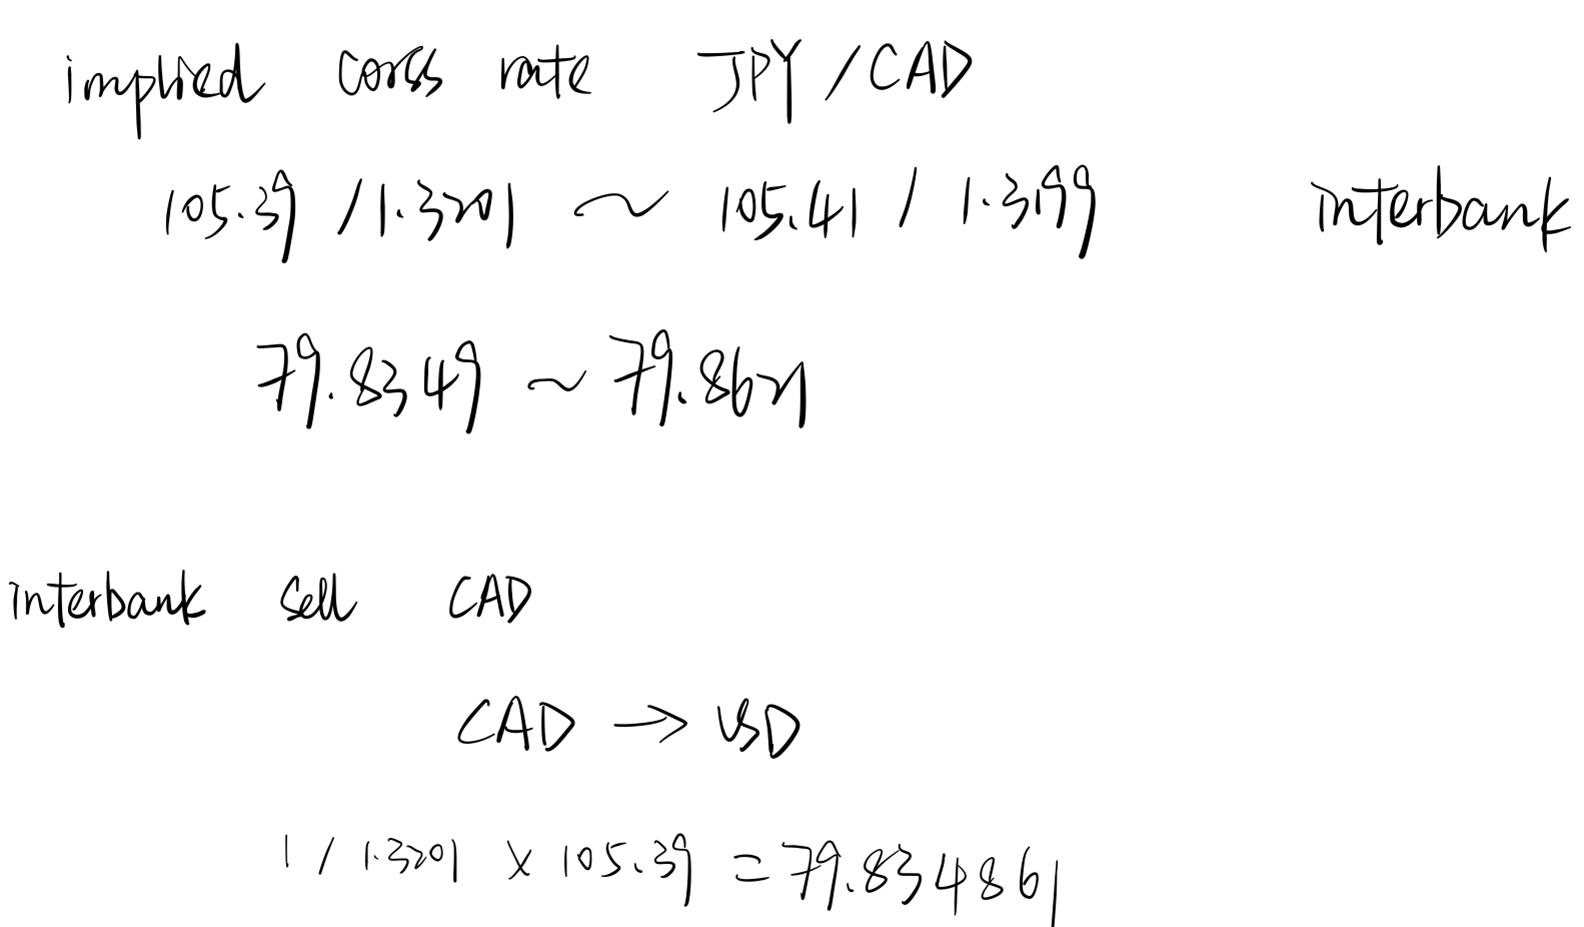 implied corss rate JPY / CAD
105.39 / 1.3201 ~ 105.41 / 1.3199 interbank
79.8349 ~ 79.8621
interbank sell CAD
CAD → USD
1 / 1.3201 × 105.39 = 79.834861